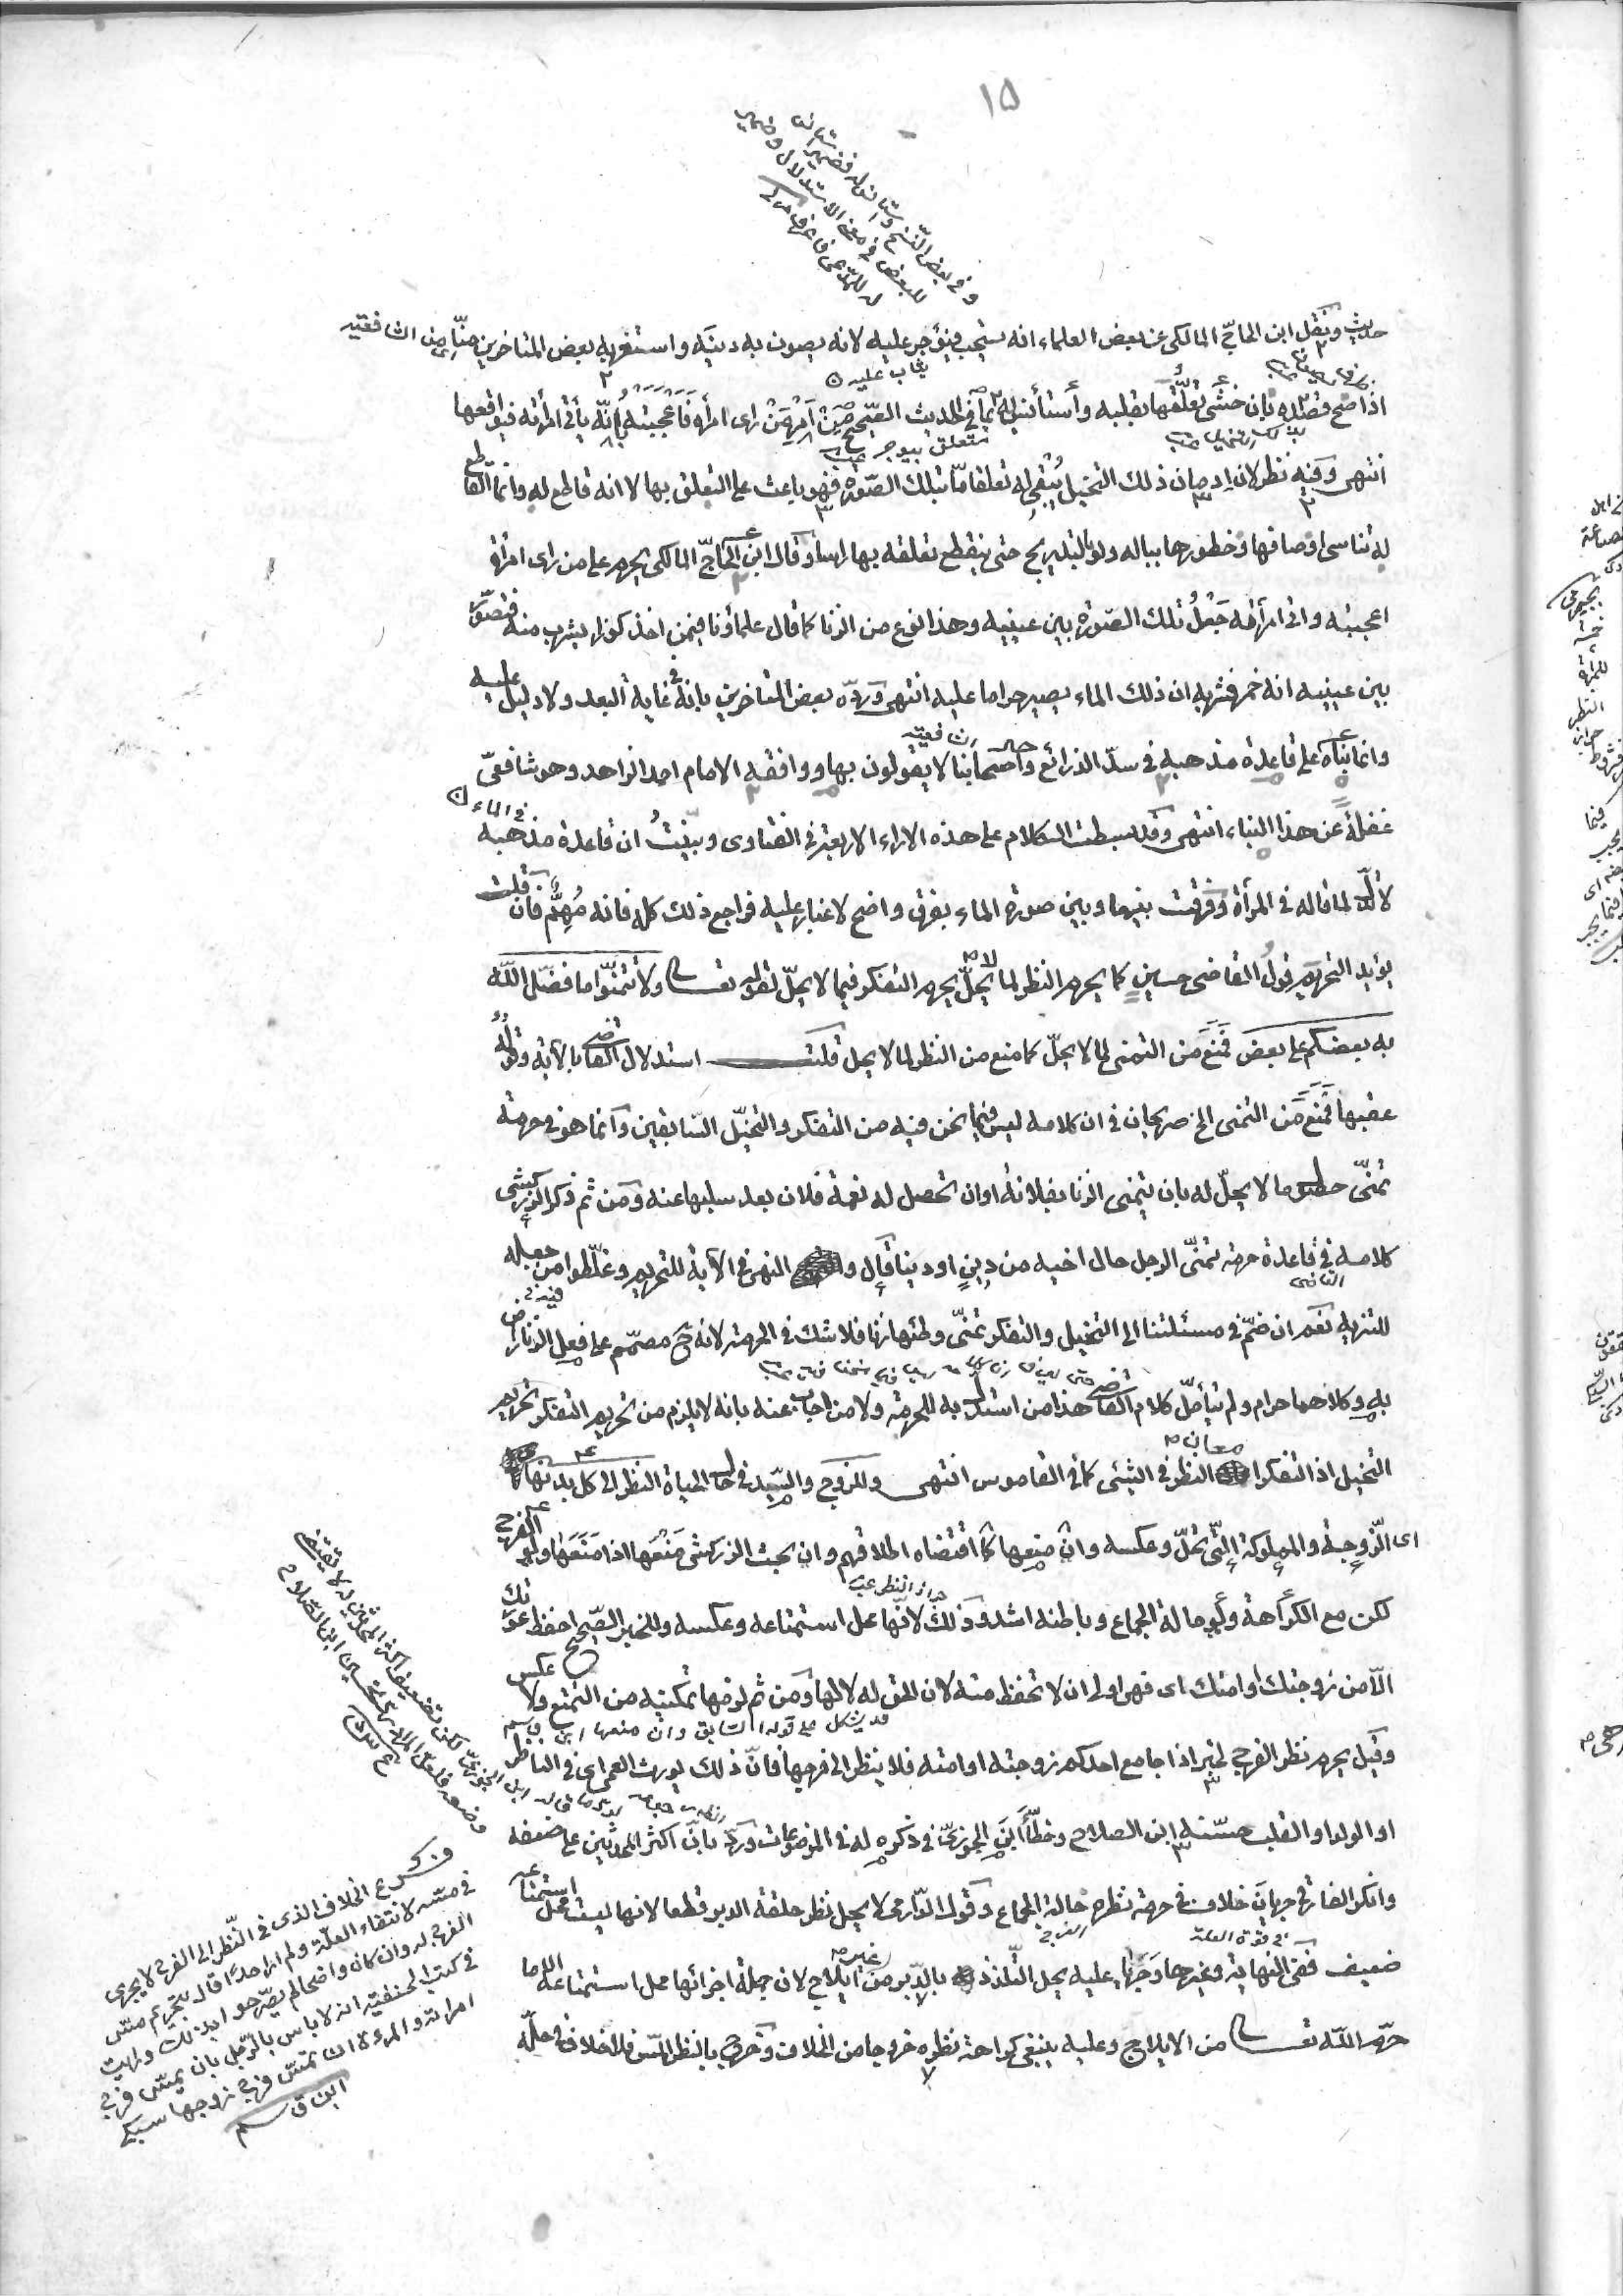 ١٥
وفي بعض النسخ واستأنس له فضمير استأنس
للبعض في صحة الاستدلال وضمير
له للمدعى فاعرف
حديث ونقل ابن الحاج المالكى عن بعض العلماء انه يستحب فيؤجر عليه لانه يصون به دينه واستقر به بعض المتأخرين منا من الشافعيه
يثاب عليه
اذا صح قصده بان خشى تعلقها بقلبه واستأنس له بما في الحديث الصحيح من امر من راى امرأة فاعجبته بانه يأتى امرأته فيواقعها
متعلق بيوجر
انتهى وفيه نظر لان ادمان ذلك التخيل يبقى له تعلقا ما بتلك الصورة فهو باعث على التعلق بها لا انه قاطع له وانما القاطع
له تناسى اوصافها وخطورها بباله ولو بالتدريج حتى ينقطع تعلقه بها راسا وقال ابن الحاج المالكى يحرم على من راى امرأة
اعجبته واتى امرأته جعل تلك الصورة بين عينيه وهذا نوع من الزنا كما قال علماؤنا فيمن اخذ كوزا يشرب منه فتصور
بين عينيه انه خمر فشربه ان ذلك الماء يصير حراما عليه انتهى ورده بعض المتأخرين بانه في غاية البعد ولا دليل عليه
وانما بناه على قاعدة مذهبه في سد الذرائع واصحابنا لا يقولون بها ووافقه الامام احمد الزاهد وهو شافعى
غفلة عن هذا البناء انتهى وقد بسطت الكلام على هذه الاراء الاربعة في الفتاوى وبينت ان قاعدة مذهبه
في الماء
لا تدل لما قاله في المرأة وفرقت بينها وبين صورة الماء بفرق واضح لا غبار عليه فراجع ذلك كله فانه مهم فان قلت
يؤيد التحريم قول القاضى حسين كما يحرم النظر لما لا يحل يحرم التفكر فيما لا يحل لقوله تعالى ولا تتمنوا ما فضل الله
به بعضكم على بعض فمنع من التمنى لما لا يحل كما منع من النظر لما لا يحل قلت استدلال القاضى بالآية وقوله
عقبها فمنع من التمنى الخ صريحان في ان كلامه ليس فيما نحن فيه من التفكر والتخيل السابقين وانما هو في حرمة
تمنى حصول ما لا يحل له بان يتمنى الزنا بفلانة او ان تحصل له نعمة فلان بعد سلبها عنه ومن ثم ذكر الزركشى
كلامه في قاعدة حرمة تمنى الرجل حال اخيه من دين او دنيا قال والنهى في الآية للتحريم وغلطوا من جعله
القاضى
للتنزيه نعم ان ضم في مسئلتنا الى التخيل والتفكر تمنى وطئها زنا فلا شك في الحرمة لانه ح مصمم على فعل الزنا راض
به وكلاهما حرام ولم يتأمل كلام القاضى هذا من استدل به للحرمة ولا من اجاب عنه بانه لا يلزم من تحريم التفكر تحريم
التخيل اذ التفكر اعمال النظر في الشئ كما في القاموس انتهى وللزوج والسيد في حال الحياة النظر الى كل بدنها
اى الزوجة والمملوكة التى تحل وعكسه وان منعها كما اقتضاه اطلاقهم وان بحث الزركشى منعها اذا منعها ولو الفرج
لكن مع الكراهة ولو حالة الجماع وباطنه اشد وذلك لانها محل استمتاعه وعكسه وللخبر الصحيح احفظ عورتك
جواز النظر
الا من زوجتك او امتك اى فهى اولى ان لا تحفظ منه لان الحق له لا لها ومن ثم لزمها تمكينه من التمتع ولا عكس
قد يشكل على قوله السابق وان منعها ابن قاسم
وقيل يحرم نظر الفرج لخبر اذا جامع احدكم زوجته او امته فلا ينظر الى فرجها فان ذلك يورث العمى اى في الناظر
او الولد او القلب حسنه ابن الصلاح وخطأ ابن الجوزى في ذكره له في الموضوعات ورد بان اكثر المحدثين على ضعفه
وانكر الفارقى جريان خلاف في حرمة نظره حالة الجماع وقول الدارمى لا يحل نظر حلقة الدبر قطعا لانها ليست محل استمتاعه
في قوة العلة
ضعيف ففى النهاية وغيرها وجرى عليه يحل التلذذ بالدبر من غير ايلاج لان جملة اجزائها محل استمتاعه الا ما
حرم الله تعالى من الايلاج وعليه ينبغى كراهة نظره خروجا من الخلاف وخرج بالنظر المس فلا خلاف في حله
وذكر ع الخلاف الذى في النظر الى الفرج لا يجرى
في مسه لانتفاء العلة ولم ار احدا قال بتحريم مس
الفرج له وان كان واضحا لم يصرحوا بذلك ورايت
في كتب الحنفيه انه لا باس بالرجل بان يمس فرج
امراته والمرءة ان تمس فرج زوجها سبكى
ابن قاسم